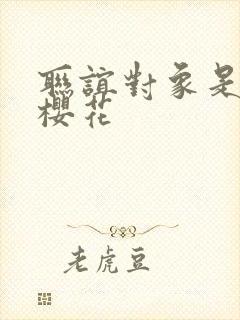 聯誼對象是
櫻花
老虎豆